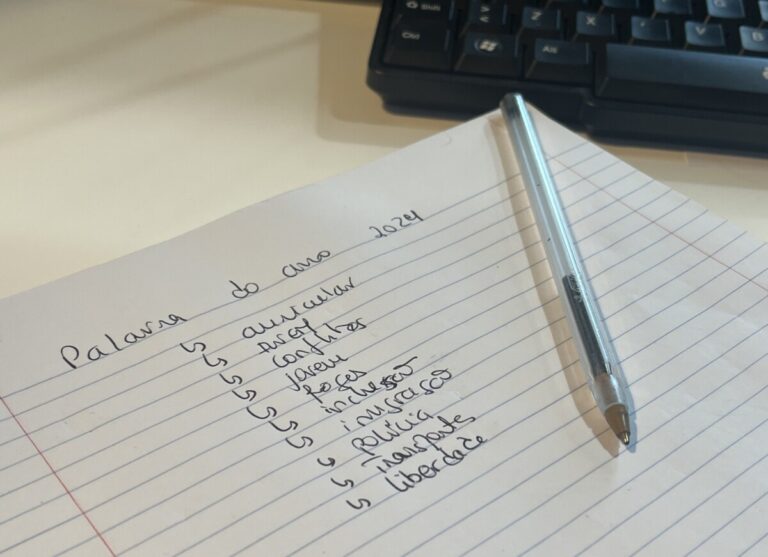 Shift
Ctrl
Alt
Z
X
C
V
B
Palavra do ano 2024
auricular
conflitos
jovem
fogos
inclusão
imigração
polícia
transportes
liberdade